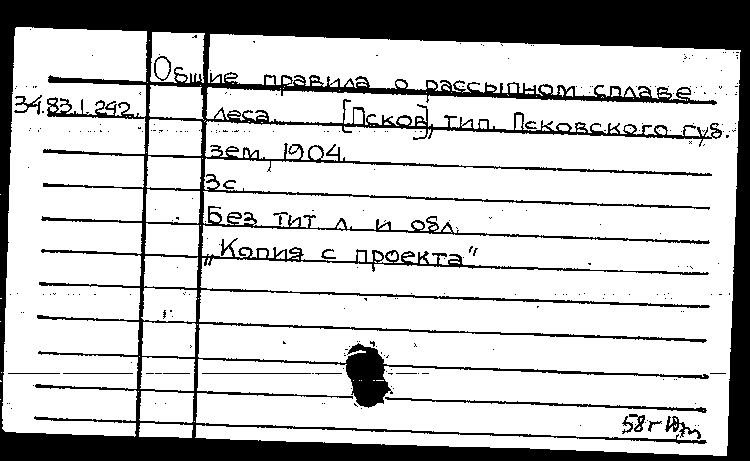 Общие правила о рассыпном сплаве
34.83.1.242. леса. [Псков], тип. Псковского губ.
зем., 1904.
3с.
Без тит л. и обл.
„Копия с проекта"
58г